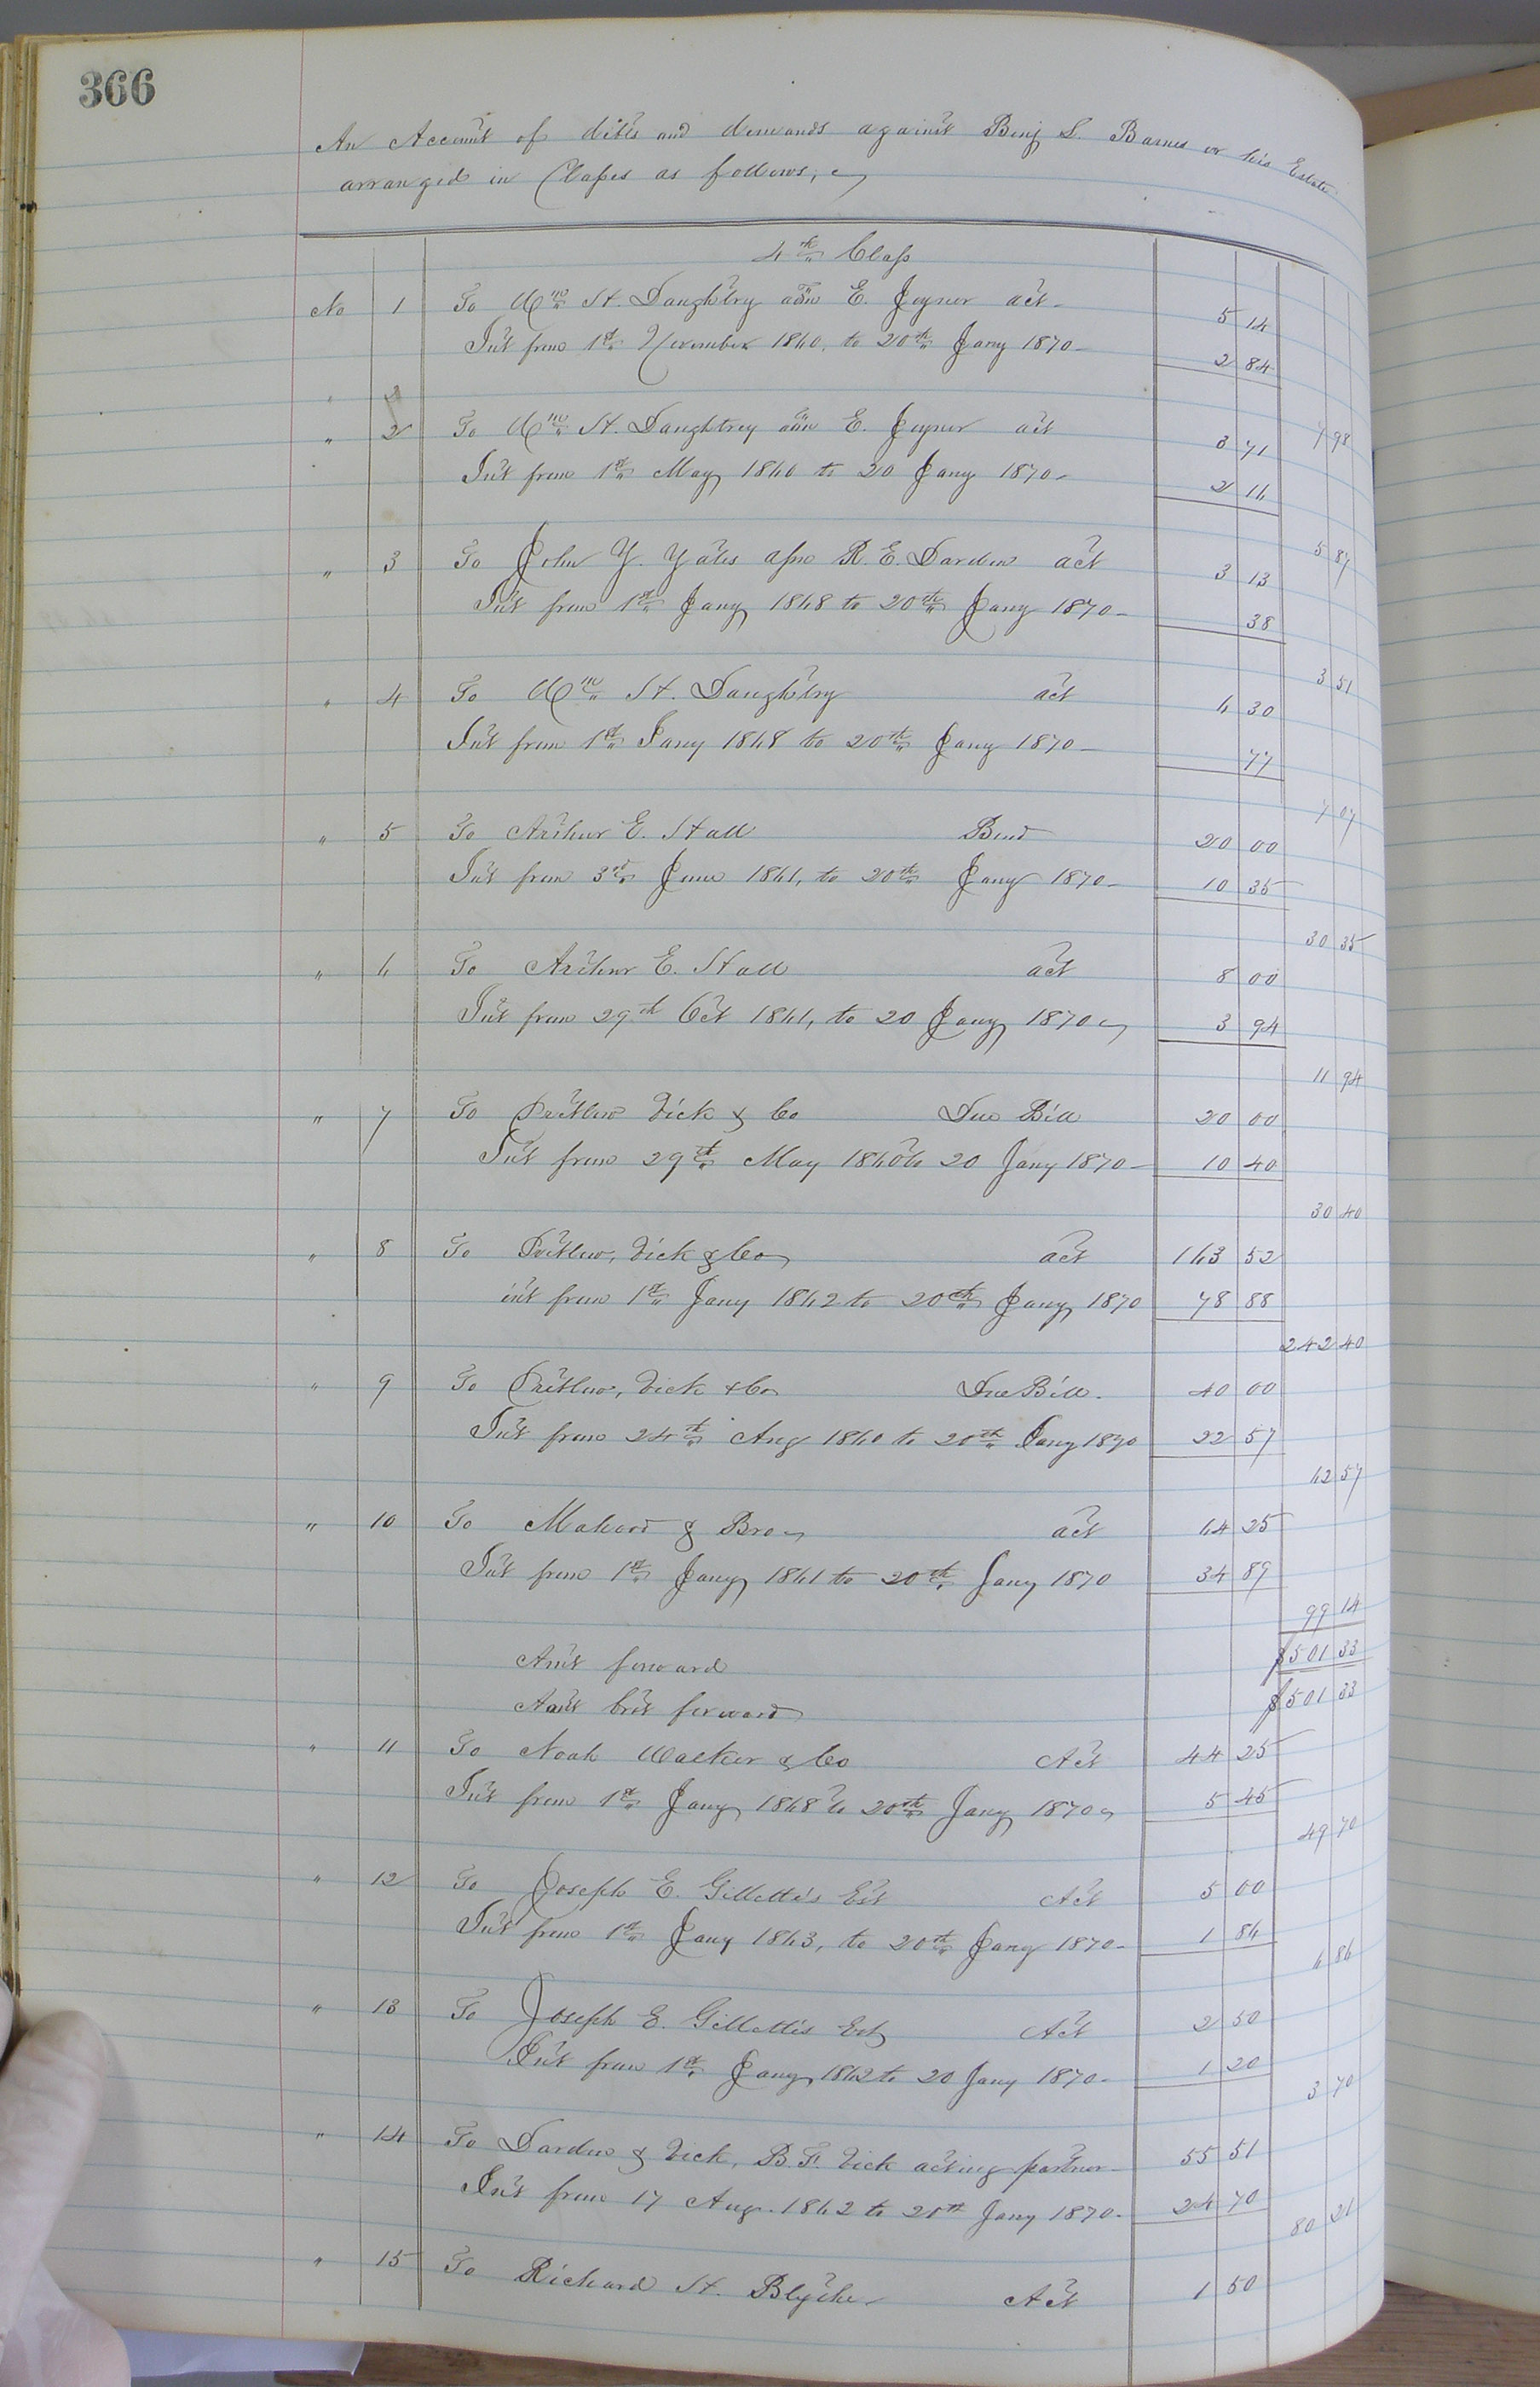 366
An Account of debts and demands against Benj S. Barnes or his Estate
arranged in Classes as follows,
4th Class
No 1 To Wm H. Daughtry adm E. Joyner act 5 14
Int from 1st November 1860, to 20th Jany 1870 2 84
7 98
" 2 To Wm H. Daughtrey adm E. Joyner act 3 71
Int from 1st May 1860 to 20 Jany 1870 2 16
5 87
" 3 To John Y. Yates assne R. E. Darden act 3 13
Int from 1st Jany 1868 to 20th Jany 1870 38
3 51
" 4 To Wm H. Daughtry act 6 30
Int from 1st Jany 1868 to 20th Jany 1870 77
7 07
" 5 To Arthur E. Hall Bond 20 00
Int from 3rd June 1861, to 20th Jany 1870 10 35
30 35
" 6 To Arthur E. Hall act 8 00
Int from 29th Oct 1861, to 20 Jany 1870 3 94
11 94
" 7 To Pretlow Vick & Co Due Bill 20 00
Int from 29th May 1860 to 20 Jany 1870 10 40
30 40
" 8 To Pretlow, Vick & Co act 163 52
int from 1st Jany 1862 to 20th Jany 1870 78 88
242 40
" 9 To Pretlow, Vick & Co Due Bill. 40 00
Int from 24th Aug 1860 to 20th Jany 1870 22 57
62 57
" 10 To Mahood & Bro act 64 25
Int from 1st Jany 1861 to 20th Jany 1870 34 89
99 14
Amt forward $501 33
Amt brot forward $501 33
" 11 To Noah Walker & Co Act 44 25
Int from 1st Jany 1868 to 20th Jany 1870 5 45
49 70
" 12 To Joseph E. Gillette's Est Act 5 00
Int from 1st Jany 1863, to 20th Jany 1870 1 86
6 86
" 13 To Joseph E. Gillette's Est Act 2 50
Int from 1st Jany 1862 to 20 Jany 1870 1 20
3 70
" 14 To Darden & Vick, B. F. Vick acting partner 55 51
Int from 17 Aug. 1862 to 20th Jany 1870 24 70
80 21
" 15 To Richard H. Blythe Act 1 50